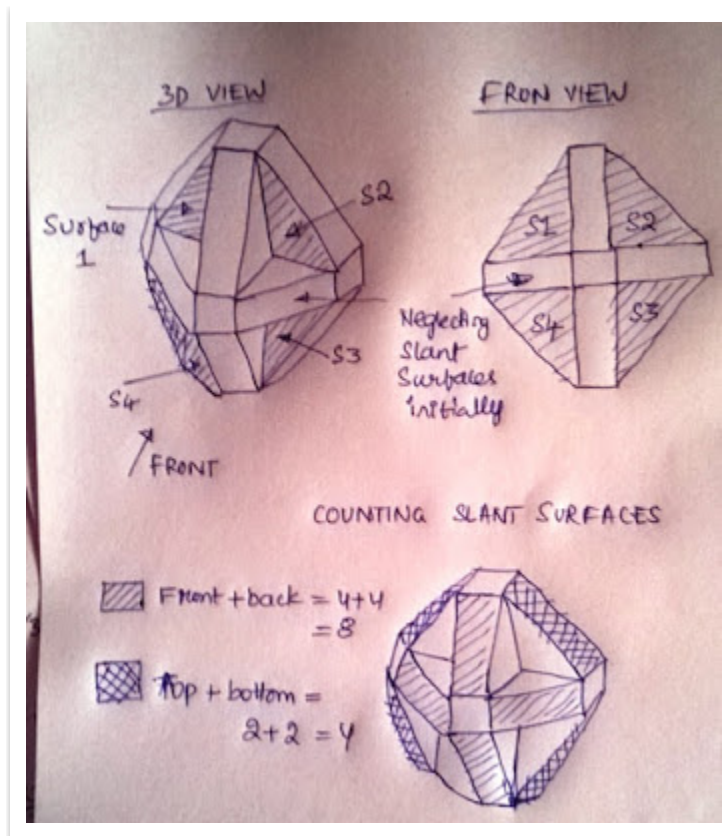 3D VIEW
FRON VIEW
Surface
1
S2
S3
S4
FRONT
S1
S2
S4
S3
Neglecting
Slant
Surfaces
initially
COUNTING SLANT SURFACES
Front + back = 4+4
= 8
Top + bottom =
2+2 = 4